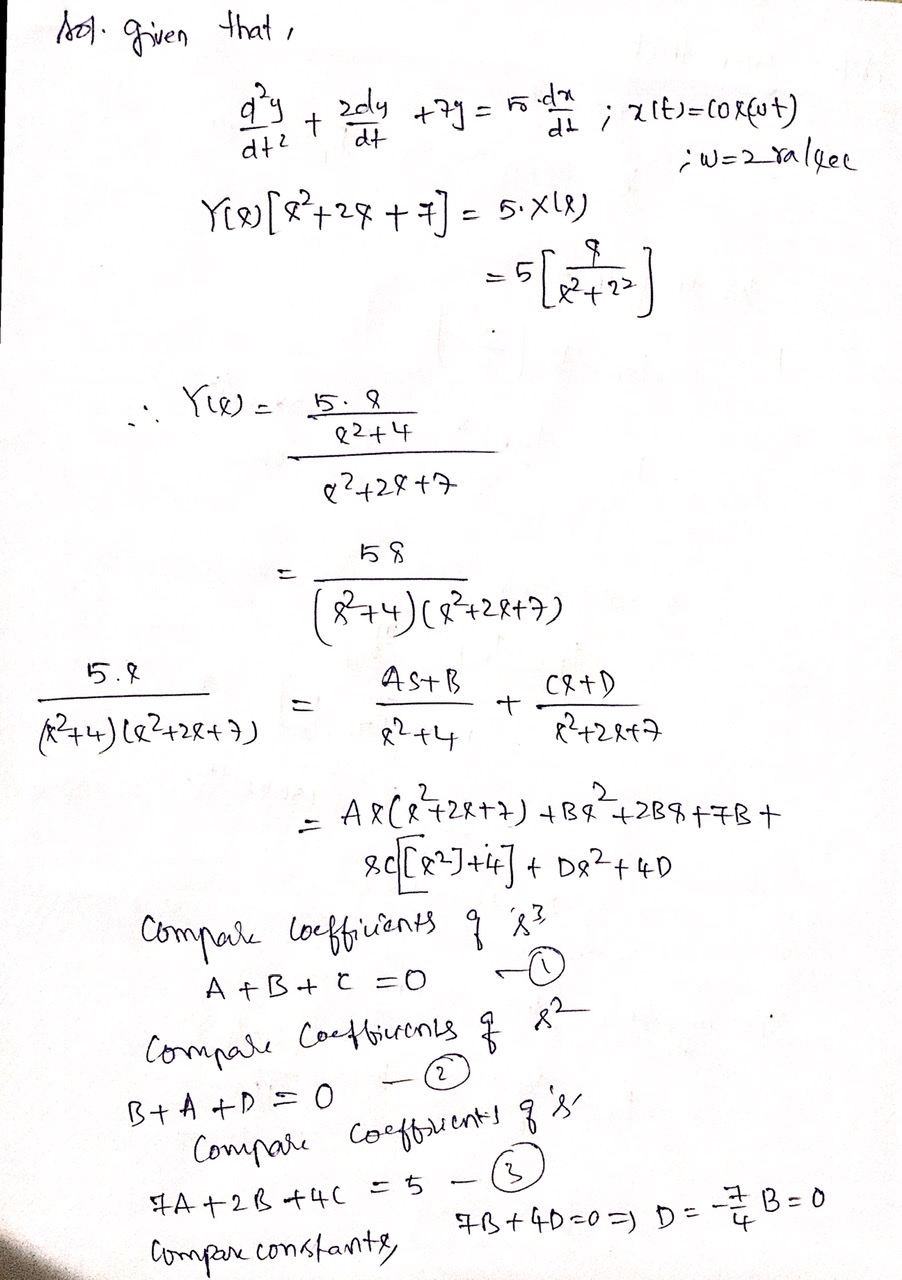 Sol. given that,
d²y/dt² + 2dy/dt + 7y = 5·dx/dt ; x(t)=cos(ωt)
; w=2 rad/sec
Y(s)[s²+2s+7] = 5·X(s)
= 5[s/(s²+2²)]
∴ Y(s) = (5·s/(s²+4))/(s²+2s+7)
= 5s/((s²+4)(s²+2s+7))
5·s/((s²+4)(s²+2s+7)) = (As+B)/(s²+4) + (Cs+D)/(s²+2s+7)
= As(s²+2s+7) + Bs²+2Bs+7B+
sc[[s²]+4] + Ds²+4D
Compare Coefficients of 's³
A+B+C=0 —①
Compare Coefficients of s²
B+A+D=0 —②
Compare Coefficients of 's'
7A+2B+4C=5 —③
Compare constants, 7B+4D=0 ⇒ D=-7/4 B=0